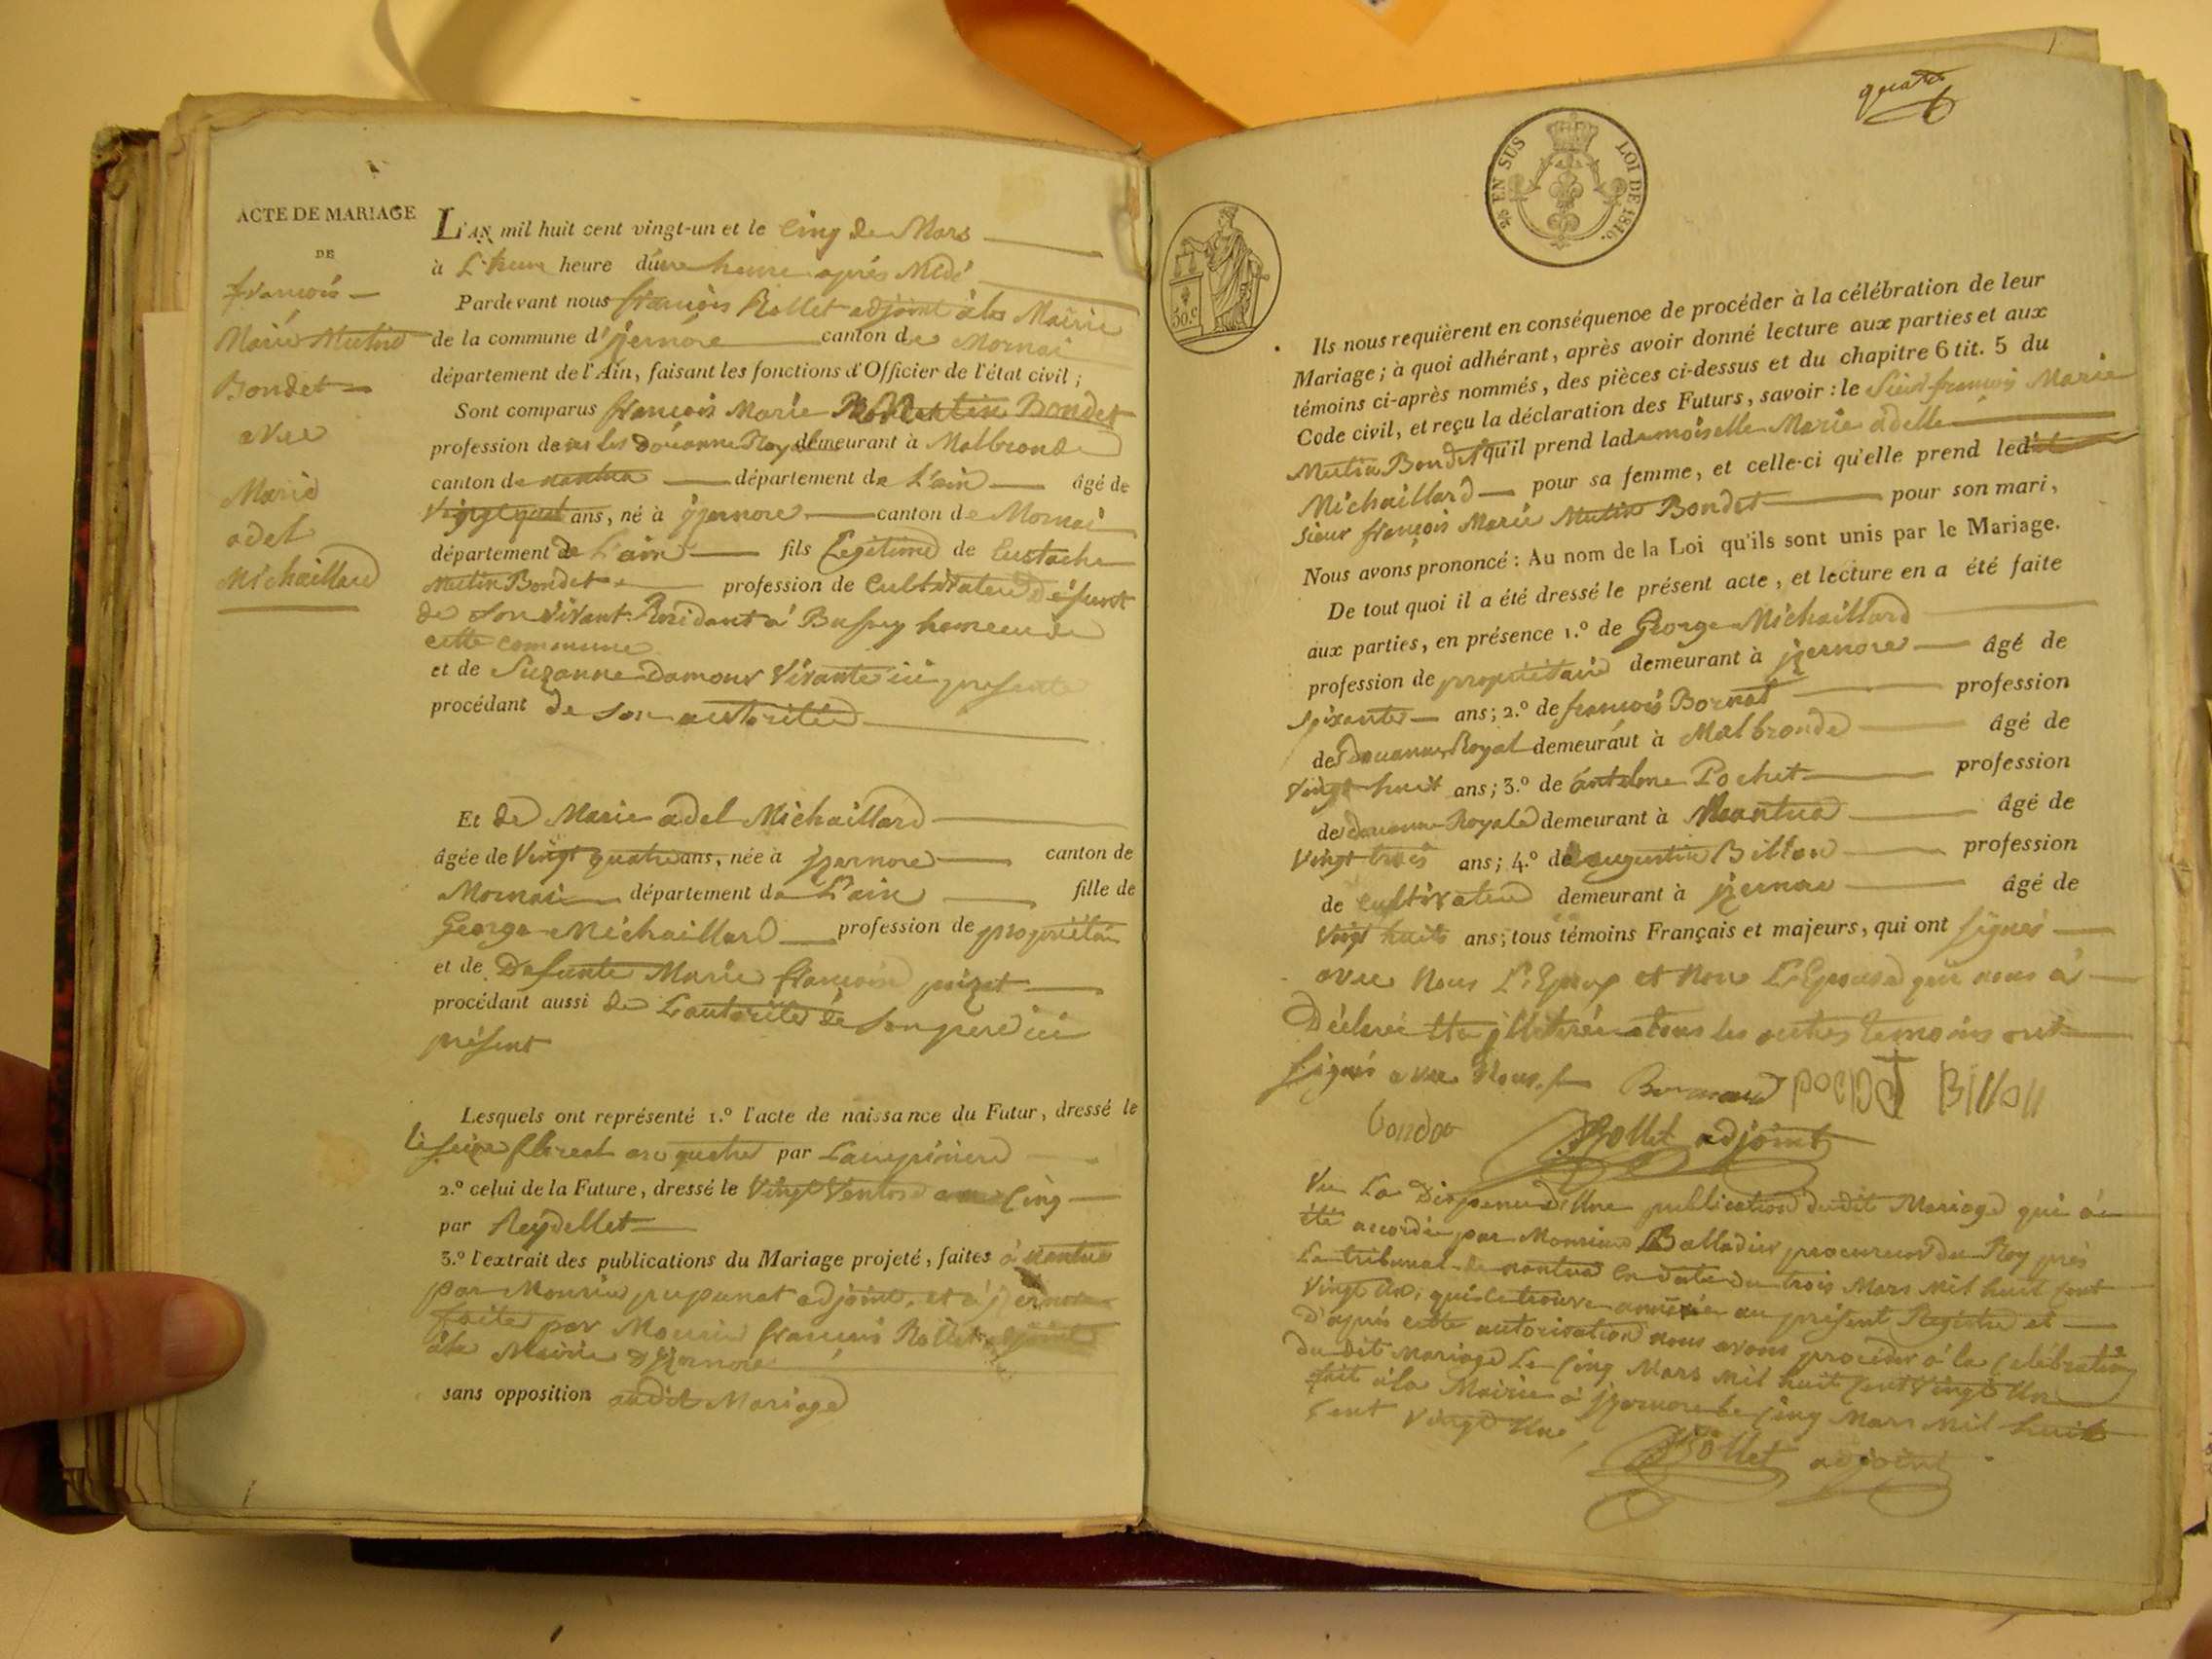 ACTE DE MARIAGE
DE
françois
Marie Mutin
Bondet
avec
Marie
adel
Michaillard
L'AN mil huit cent vingt-un et le Cinq de Mars
à L'heure heure d'une heure après Midi
Pardevant nous françois Rollet adjoint à la Mairie
de la commune d'jzernore canton de Mornai
département de l'Ain, faisant les fonctions d'Officier de l'état civil ;
Sont comparus françois Marie Mutin Bondet
profession dans les douanne Royale demeurant à Malbronde
canton de nantua département de L'ain âgé de
ans, né à jzernore canton de Mornai
département de L'ain fils Legitime de Eustache
Mutin Bondet profession de Cultivateur défunt
de son vivant Residant à hameau de
cette commune
et de Suzanne Damour vivante ici presente
procédant de son autorité
Et de Marie adel Michaillard
âgée de Vingt quatre ans, née à jzernore canton de
Mornai département de L'ain fille de
George Michaillard profession de propriétair
et de Defunte Marie françoise poizat
procédant aussi de L'autorité de son père ici
présent
Lesquels ont représenté 1.º l'acte de naissance du Futur, dressé le
floreal an quatre par
2.º celui de la Future, dressé le Vingt Ventose an Cinq
par Reydellet
3.º l'extrait des publications du Mariage projeté, faites à nantua
par Monsieur adjoint, et à jzernore
faite par Monsieur françois Rollet adjoint
à la Mairie d'jzernore
sans opposition audit Mariage
quatre
2/5 EN SUS LOI DE 1816.
50.c
Ils nous requièrent en conséquence de procéder à la célébration de leur
Mariage ; à quoi adhérant, après avoir donné lecture aux parties et aux
témoins ci-après nommés, des pièces ci-dessus et du chapitre 6 tit. 5 du
Code civil, et reçu la déclaration des Futurs, savoir : le Sieur françois Marie
Mutin Bondet qu'il prend lademoiselle Marie adelle
Michaillard pour sa femme, et celle-ci qu'elle prend ledit
sieur françois Marie Mutin Bondet pour son mari,
Nous avons prononcé : Au nom de la Loi qu'ils sont unis par le Mariage.
De tout quoi il a été dressé le présent acte, et lecture en a été faite
aux parties, en présence 1.º de George Michaillard
profession de propriétaire demeurant à jzernore âgé de
soixante ans ; 2.º de françois Bornat profession
des douannes Royal demeurant à Malbronde âgé de
Vingt huit ans ; 3.º de antelme Pochet profession
de douanne Royale demeurant à Nantua âgé de
Vingt trois ans ; 4.º de augustin Billon profession
de cultivateur demeurant à jzernore âgé de
Vingt huits ans ; tous témoins Français et majeurs, qui ont signés
avec Nous L'Epoux et Non L'Epouse qui nous à
Déclaré être illitérée tous les autres temoins ont
signés avec Nous
pochet Billon
bondet Rollet adjoint
Vu La Dispense d'Une publication dudit Mariage qui à
été accordée par Monsieur Balladier procureur du Roy près
Le tribunal de nantua en date du trois Mars mil huit cent
Vingt Un, qui ce trouve annexée au présent Registre et
d'apprès cette autorisation nous avons procédés à la Célébration
du dit Mariage Le Cinq Mars mil huit cent vingt Un
fait à la Mairie à jzernore le Cinq Mars mil huit
Cent Vingt Une,
Rollet adjoint